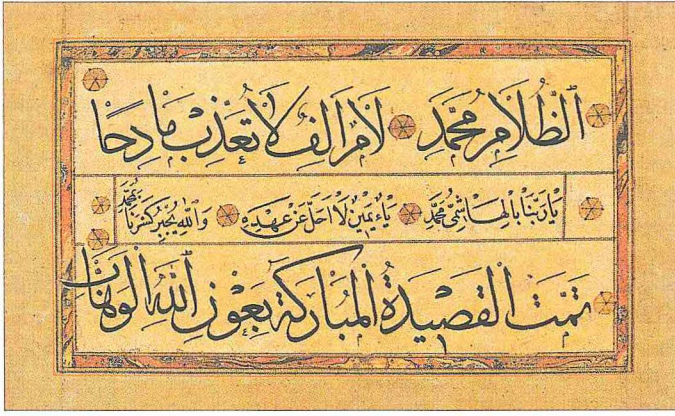 ٱلظُّلَامِ مُحَمَّدَ لَامْ اَلِفْ لَا تُعَذِّبْ مَادِحًا
يَارَبَّنَا بِالْهَاشِمِىِّ مُحَمَّدٍ يَاءُ يَمِيْنٌ لَا اَحَلَّ عَنْ عَهْدِهِ وَاللّٰهِ يُجْبِرُ كَسْرَنَا بِمُحَمَّدٍ
تَمَّتْ اَلْقَصِيْدَةُ الْمُبَارَكَةُ بِعَوْنِ ٱللّٰهِ الْوَهَّابِ